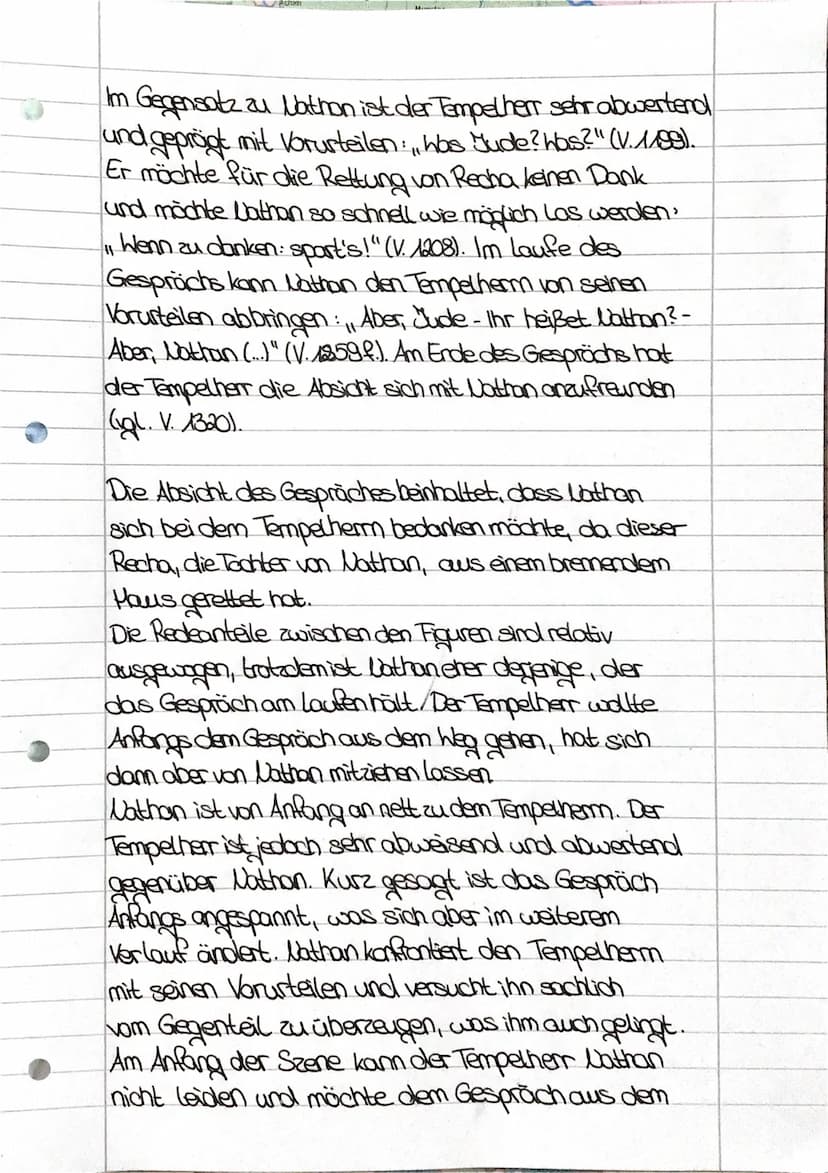 Im Gegensatz zu Nathan ist der Tempelherr sehr abwertend
und geprägt mit Vorurteilen: „Was Jude? Was?" (V. 1199).
Er möchte für die Rettung von Recha keinen Dank
und möchte Nathan so schnell wie möglich los werden:
„Wenn zu danken: spart's!" (V. 1208). Im Laufe des
Gesprächs kann Nathan den Tempelherrn von seinen
Vorurteilen abbringen: „Aber, Jude - Ihr heißet Nathan? -
Aber, Nathan (...)" (V. 1259 f.). Am Ende des Gesprächs hat
der Tempelherr die Absicht sich mit Nathan anzufreunden
(vgl. V. 1320).
Die Absicht des Gespräches beinhaltet, dass Nathan
sich bei dem Tempelherrn bedanken möchte, da dieser
Recha, die Tochter von Nathan, aus einem brennendem
Haus gerettet hat.
Die Redeanteile zwischen den Figuren sind relativ
ausgewogen, trotzdem ist Nathan eher derjenige, der
das Gespräch am Laufen hält. Der Tempelherr wollte
Anfangs dem Gespräch aus dem Weg gehen, hat sich
dann aber von Nathan mitziehen lassen.
Nathan ist von Anfang an nett zu dem Tempelherrn. Der
Tempelherr ist jedoch sehr abweisend und abwertend
gegenüber Nathan. Kurz gesagt ist das Gespräch
Anfangs angespannt, was sich aber im weiterem
Verlauf ändert. Nathan konfrontiert den Tempelherrn
mit seinen Vorurteilen und versucht ihn sachlich
vom Gegenteil zu überzeugen, was ihm auch gelingt.
Am Anfang der Szene kann der Tempelherr Nathan
nicht leiden und möchte dem Gespräch aus dem